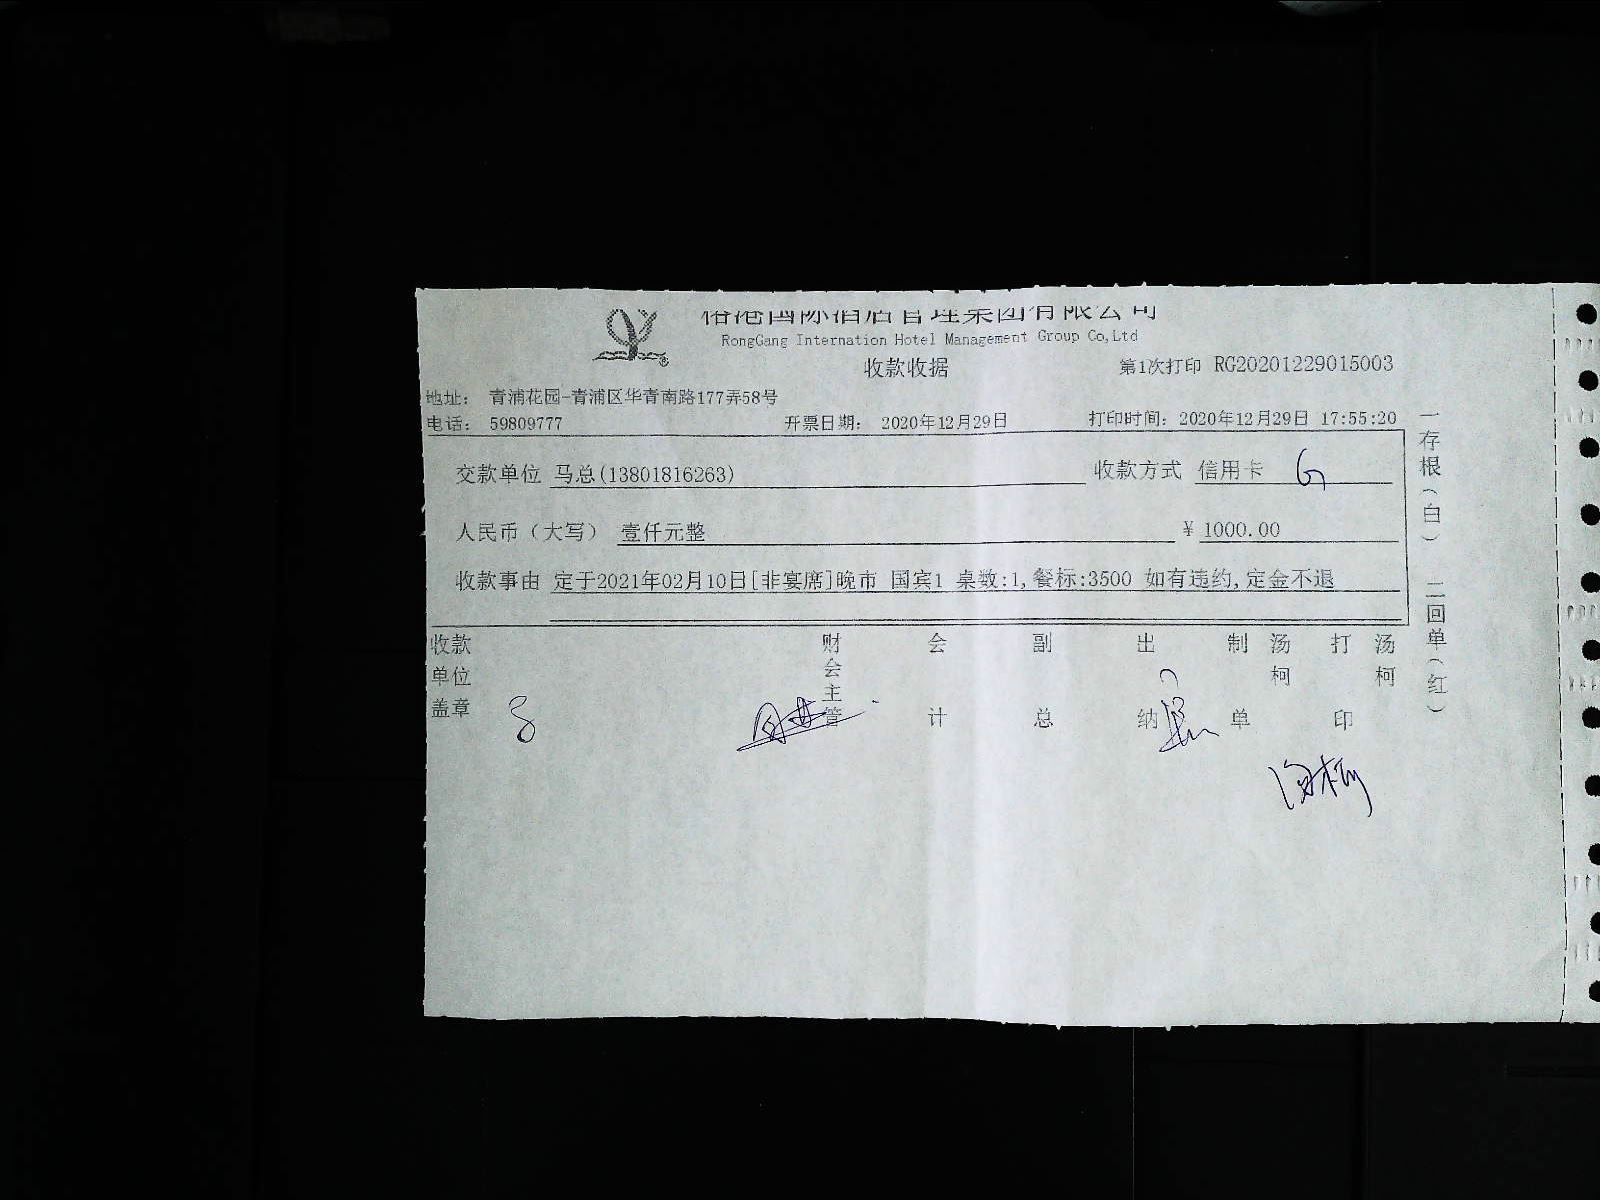 国际酒店管理集团有限公司
RongGang Internation Hotel Management Group Co,Ltd
收款收据
第1次打印 RG20201229015003
地址： 青浦花园-青浦区华青南路177弄58号
电话： 59809777 开票日期： 2020年12月29日 打印时间：2020年12月29日 17:55:20
交款单位 马总(13801816263) 收款方式 信用卡
人民币（大写） 壹仟元整 ¥ 1000.00
收款事由 定于2021年02月10日[非宴席]晚市 国宾1 桌数:1,餐标:3500 如有违约,定金不退
收款单位盖章 财会主管 会计 副总 出纳 制单 汤柯 打印 汤柯
汤柯
一存根（白） 二回单（红）